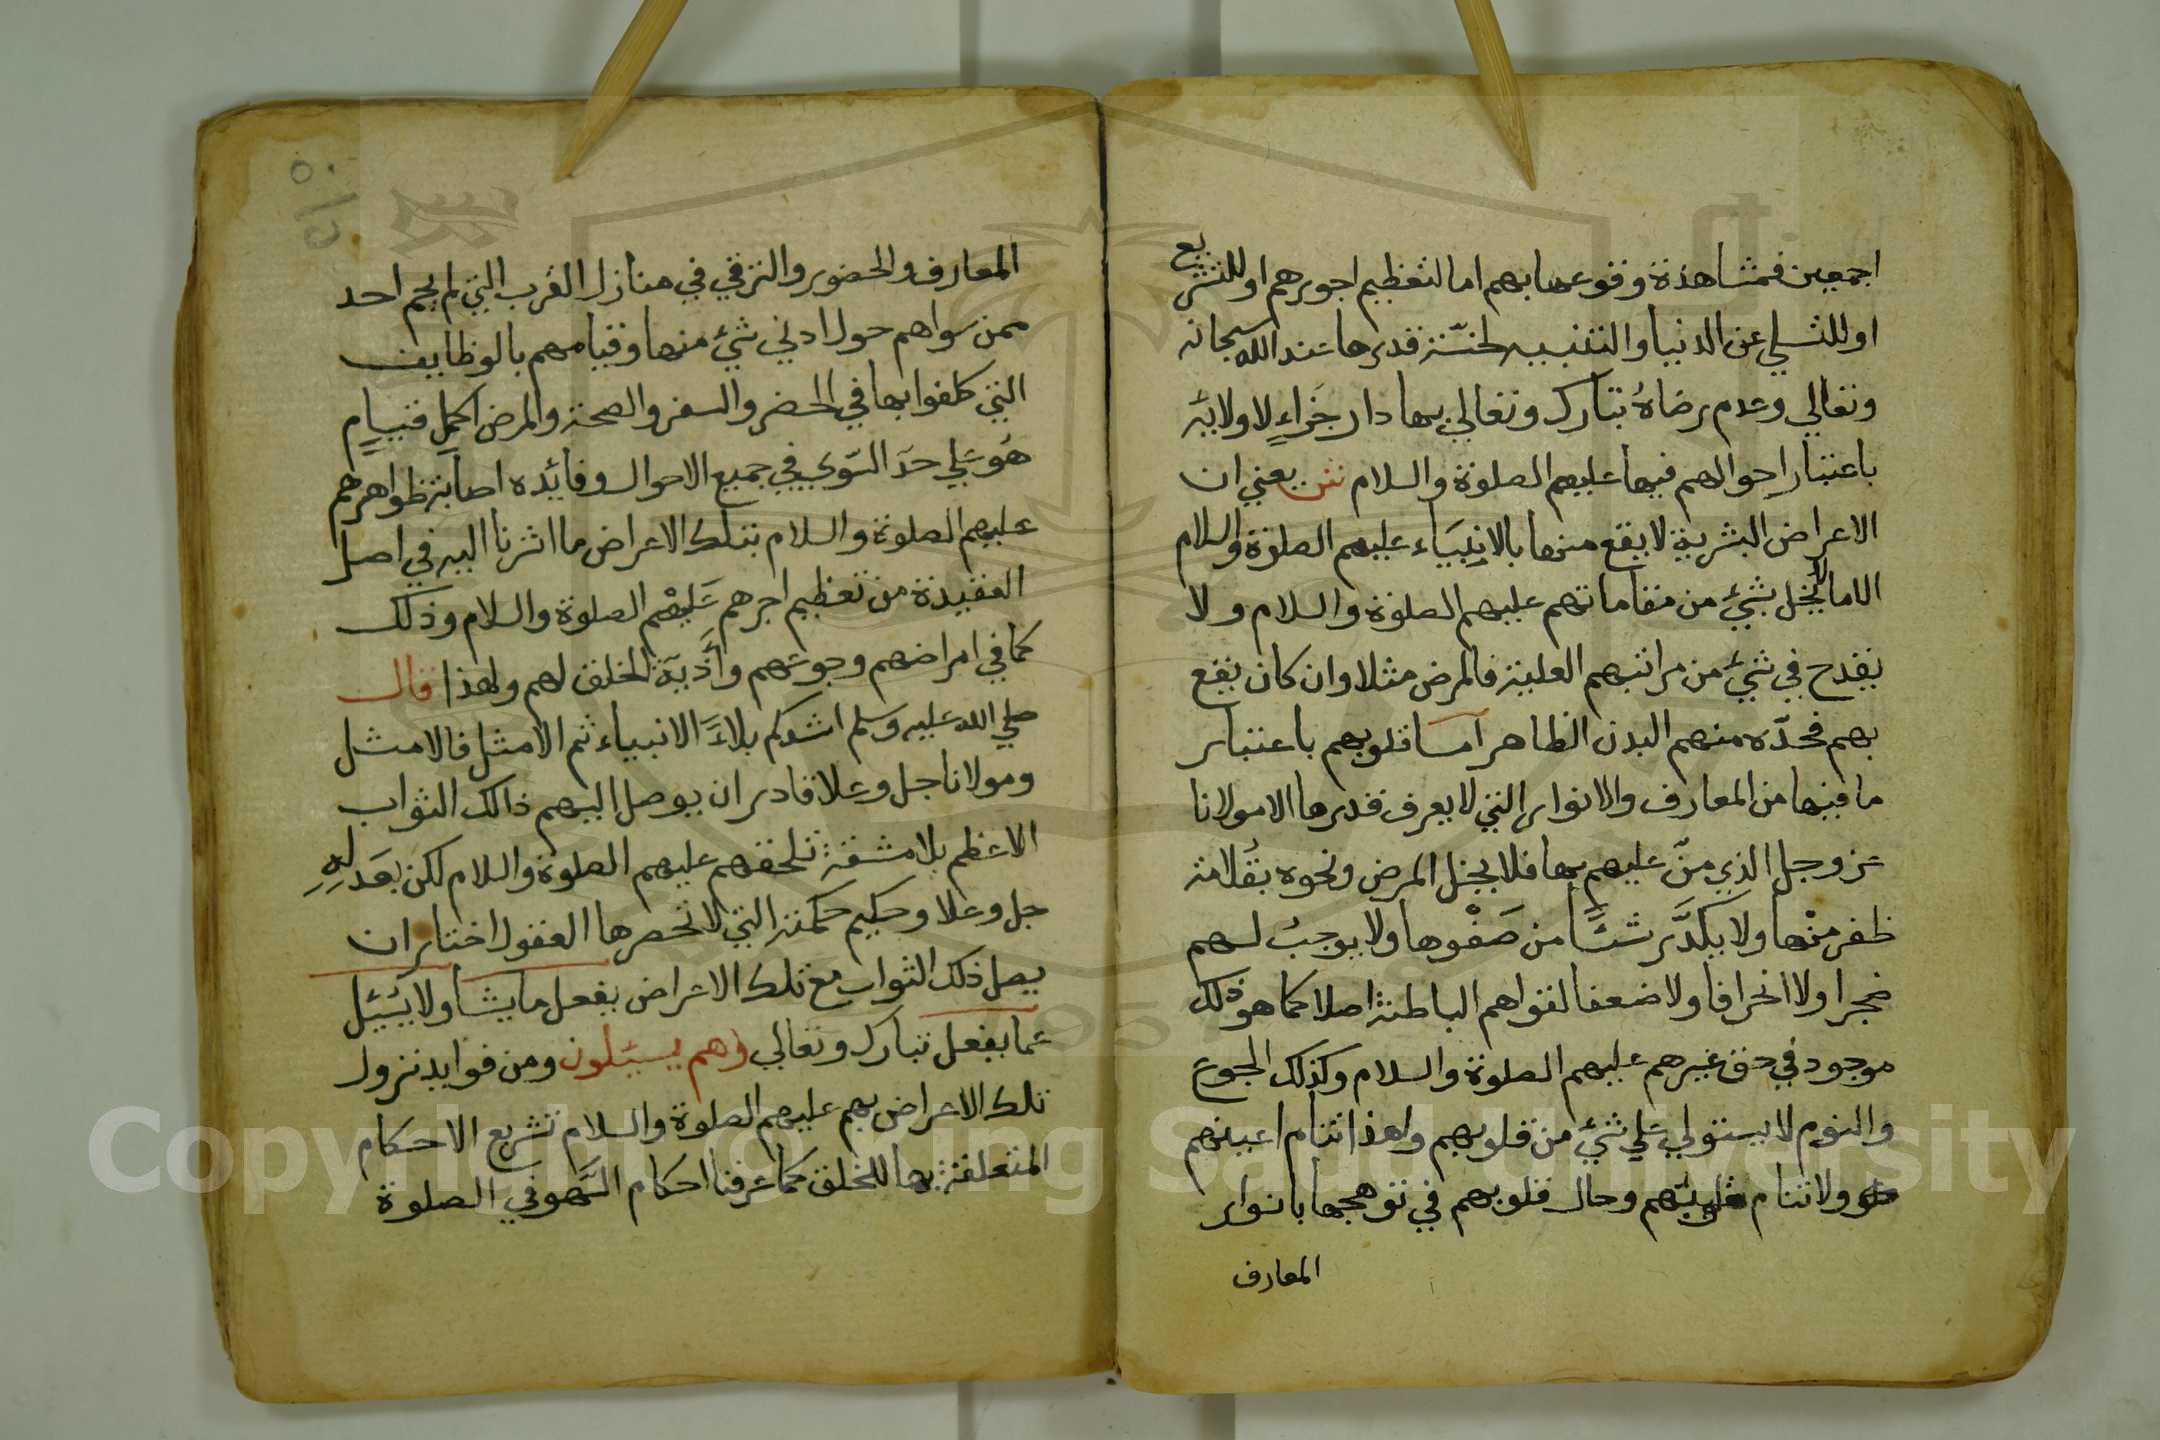 اجمعين فمشاهدة وقوعها بهم اما لتعظيم اجورهم او للتشريع
او للتسلي عن الدنيا والتنبيه لخسّة قدرها عند الله سبحانه
وتعالي وعدم رضاهُ تبارك وتعالي بها دار جَزاءٍ لاوليائه
باعتبار احوالهم فيها عليهم الصلوة والسلام ش يعني ان
الاعراض البشرية لا يقع منها بالانبيَاء عليهم الصلوة والسلام
الا ما لا يخل بشئ من مقاماتهم عليهم الصلوة والسلام ولا
يقدح في شئ من مراتبهم العلية فالمرض مثلا وان كان يقع
بهم فحدّه منهم البدن الظاهر امسا قلوبهم باعتبار
ما فيها من المعارف والانوار التي لا يعرف قدرها الا مولانا
عز وجل الذي منّ عليهم بها فلا يخل المرض ونحوه بقُلامة
ظفر منْها ولا يكدَّر شئًا من صَفْوها ولا يوجبُ لهم
ضجرا ولا انحرافا ولا ضعفا لقواهم الباطنة اصلا كما هو ذلك
موجود في حق غيرهم عليهم الصلوة والسلام وكذلك الجوع
والنوم لا يستولي علي شئ من قلوبهم ولهذا تنام اعينهم
ولا تنام قلوبهم وحال قلوبهم في توهجها بانوار
المعارف
٥٠
المعارف والحضور والترقي في منازل القرب التي لم يحم احد
ممن سواهم حول ادني شئ منها وقيامهم بالوظايف
التي كلفوا بها في الحضر والسفر والصحة والمرض اكمل قيام
هُو علي حدّ السّوي في جميع الاحوال وفائده اصابة ظواهرهم
عليهم الصلوة والسلام بتلك الاعراض ما اشرنا اليه في اصل
العقيدة من تعظيم اجرهم عَليهْم الصلوة والسلام وذلك
كما في امراضهم وجوعهم وأَذيّة الخلق لهم ولهذا قال
صلي الله عليه وسلم اشدكم بلاءً الانبياء ثم الامثل فالامثل
ومولانا جل وعلا قادر ان يوصل اليهم ذالك الثواب
الاعظم بلا مشقة تلحقهم عليهم الصلوة والسلام لكن بعَدلِهِ
جل وعلا وحكيم حكمته التي لا تحصرها العقول اختار ان
يصل ذلك الثواب مع تلك الاعراض يفعل ما يشا ولا يسُئيل
عما يفعل تبارك وتعالي وهم يسئلون ومن فوايد نزول
تلك الاعراض بهم عليهم الصلوة والسلام تشريع الاحكام
المتعلقة بها للخلق كما عرفنا احكام السّهو في الصلوة
Copyright © King Saud University